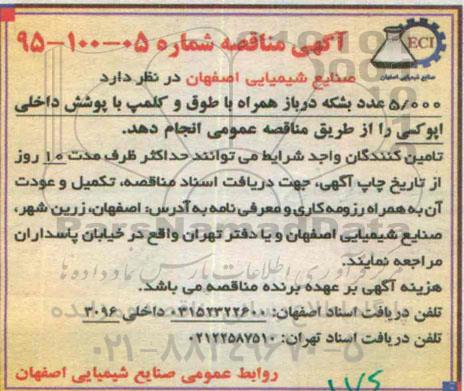 آگهی مناقصه شماره ۰۵-۱۰۰-۹۵
ECI
صنایع شیمیایی اصفهان
صنایع شیمیایی اصفهان در نظر دارد
۵/۰۰۰ عدد بشکه درباز همراه با طوق و کلمپ با پوشش داخلی
اپوکسی را از طریق مناقصه عمومی انجام دهد.
تامین کنندگان واجد شرایط می توانند حداکثر ظرف مدت ۱۰ روز
از تاریخ چاپ آگهی، جهت دریافت اسناد مناقصه، تکمیل و عودت
آن به همراه رزومه کاری و معرفی نامه به آدرس: اصفهان، زرین شهر،
صنایع شیمیایی اصفهان و یا دفتر تهران واقع در خیابان پاسداران
مراجعه نمایند.
هزینه آگهی بر عهده برنده مناقصه می باشد.
تلفن دریافت اسناد اصفهان: ۰۳۱۵۲۳۲۲۶۰۰ داخلی ۳۰۹۶
تلفن دریافت اسناد تهران: ۰۲۱۲۲۵۸۷۵۱۰
۰۲۱-۸۸۳۴۹۶۷۰-۵
روابط عمومی صنایع شیمیایی اصفهان